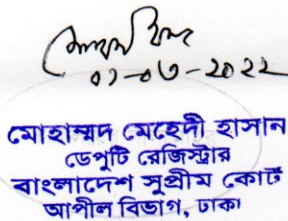 ০১-০৩-২০২২
মোহাম্মদ মেহেদী হাসান
ডেপুটি রেজিস্ট্রার
বাংলাদেশ সুপ্রীম কোর্ট
আপীল বিভাগ, ঢাকা